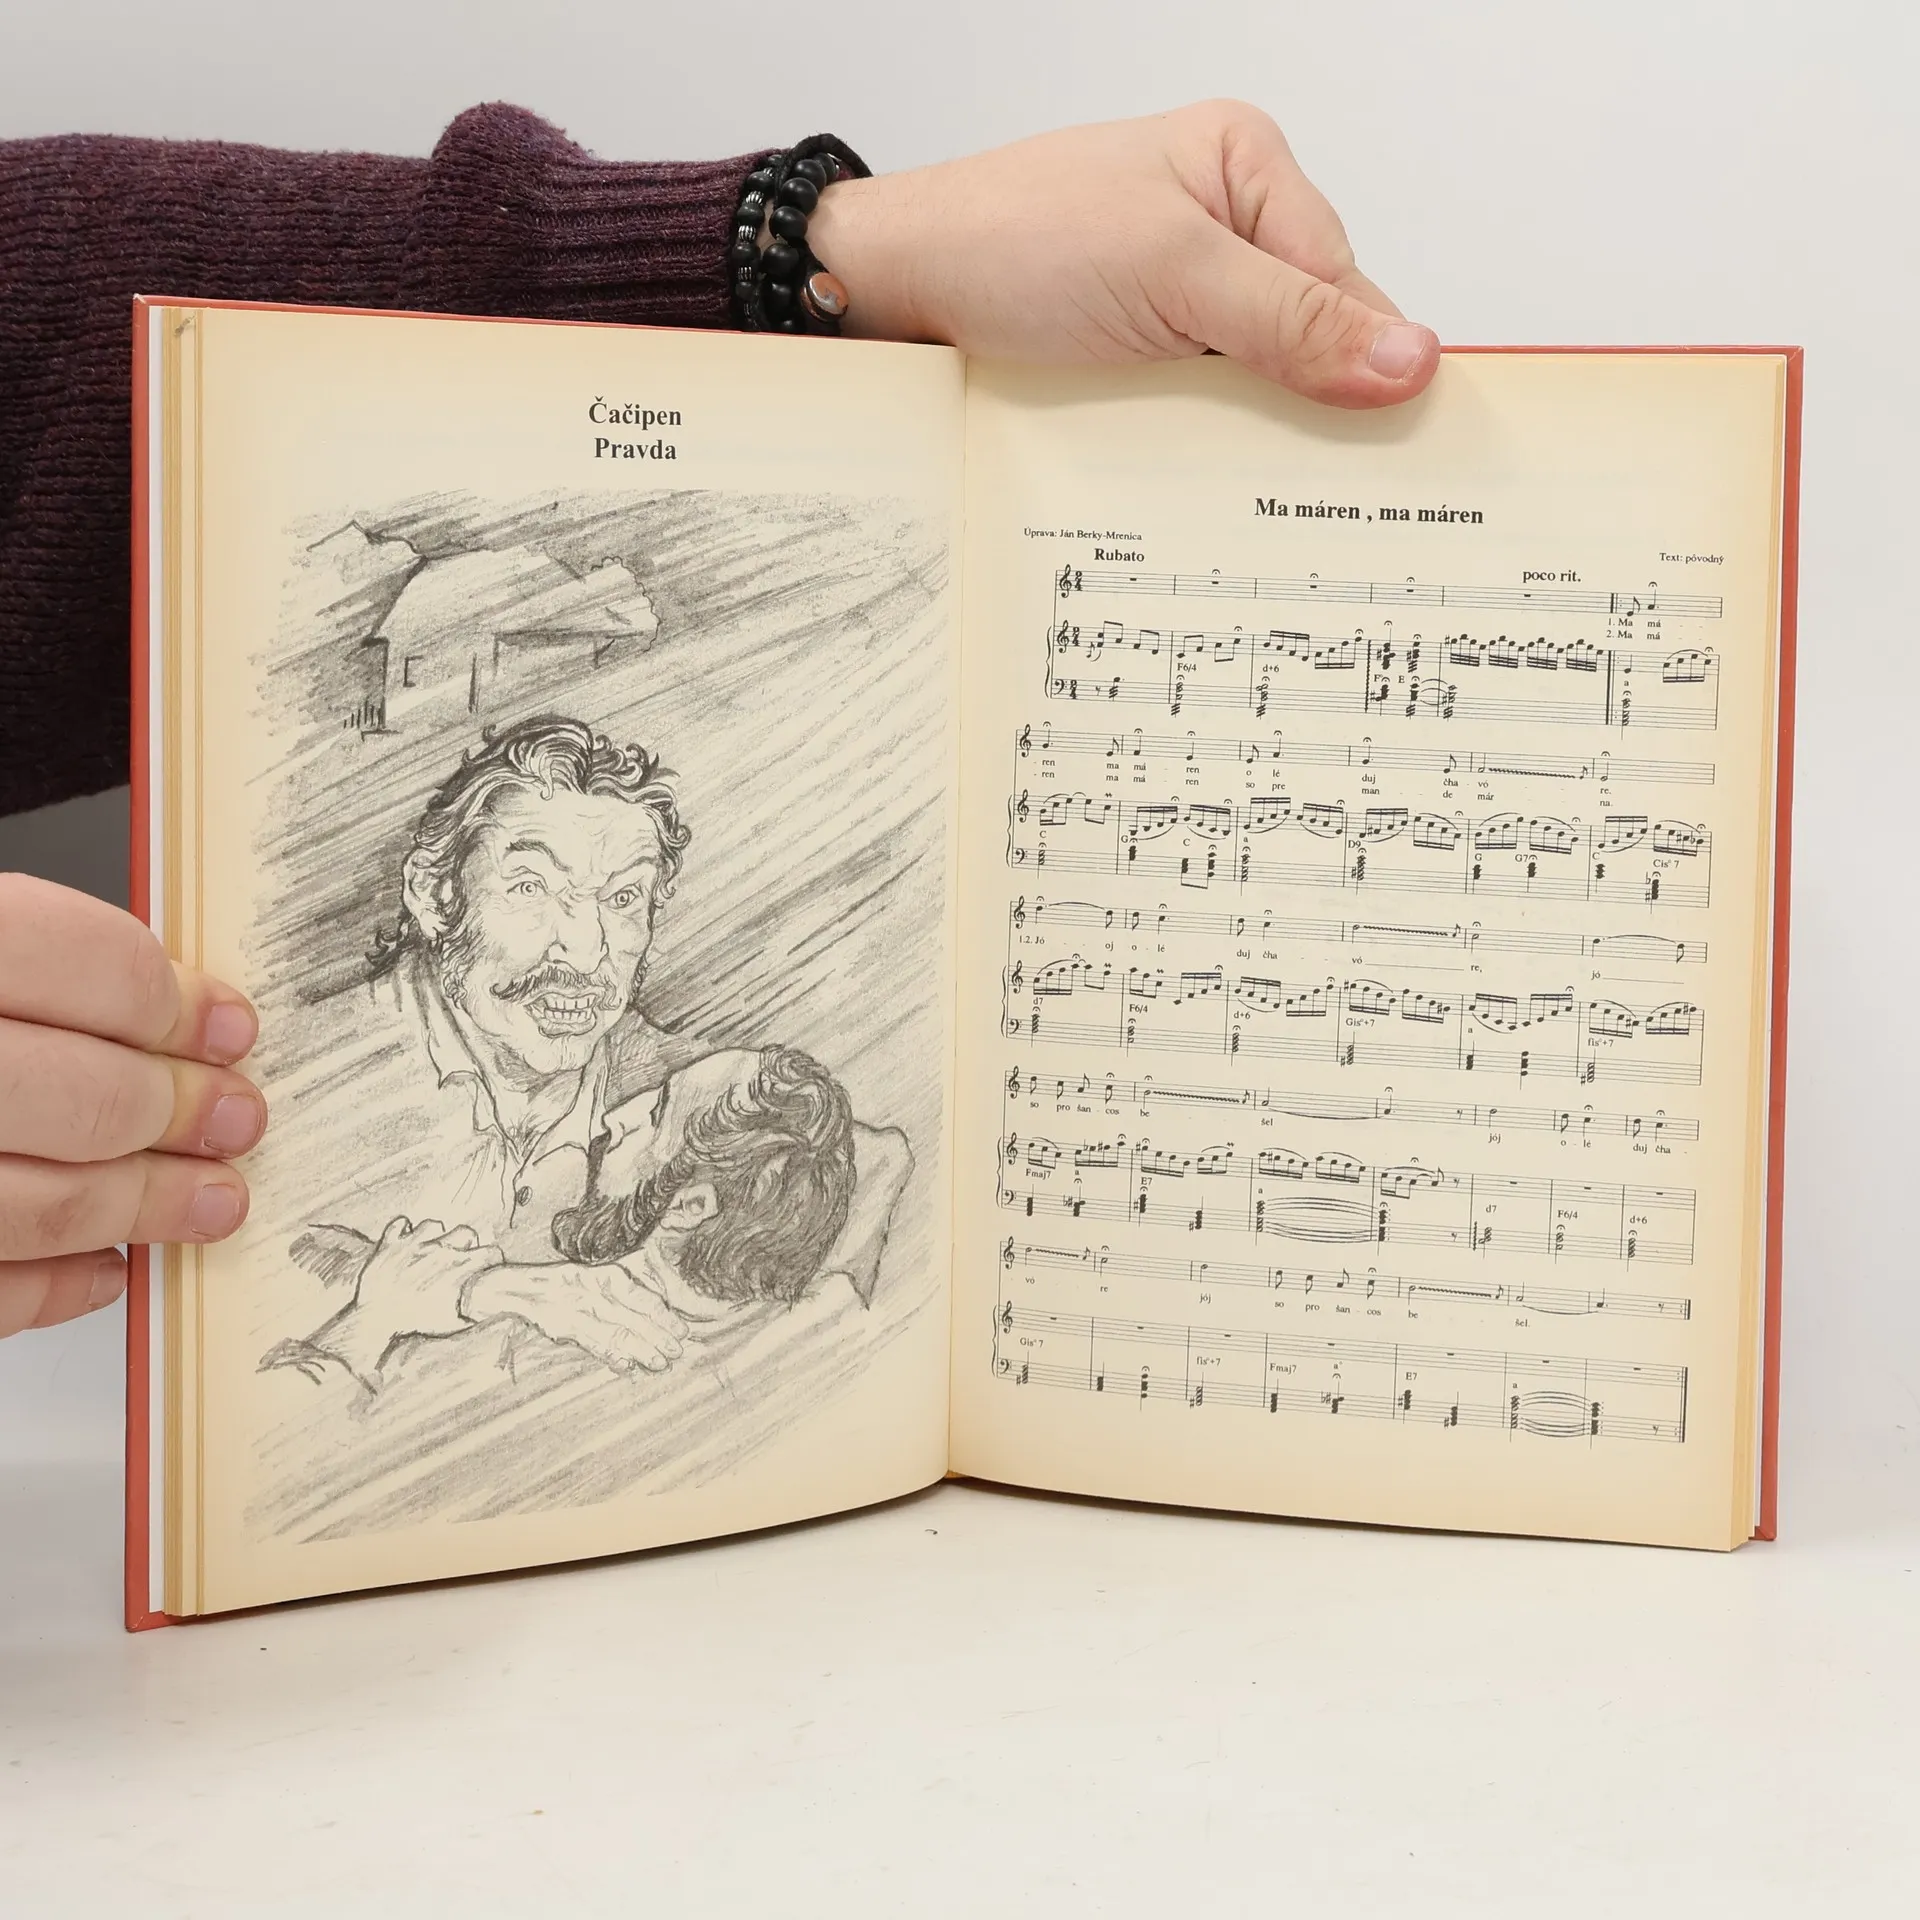 Čačipen
Pravda
Ma máren , ma máren
Úprava: Ján Berky-Mrenica
Text: pôvodný
Rubato
poco rit.
1. Ma má
2. Ma má
F6/4 d+6 F E a
ren ma má - ren o lé duj čha - vó re.
ren ma má - ren so pre man - de már na.
C G7 C a D9 G G7 C Cis° 7
1.2. Jó oj o - lé duj čha vó re, jó
d7 F6/4 d+6 Gis°+7 a fis°+7
so pro šan - cos be šel jój o - lé duj čha -
Fmaj7 a E7 a d7 F6/4 d+6
vó re jój so pro šan - cos be šel.
Gis° 7 fis°+7 Fmaj7 a° E7 a